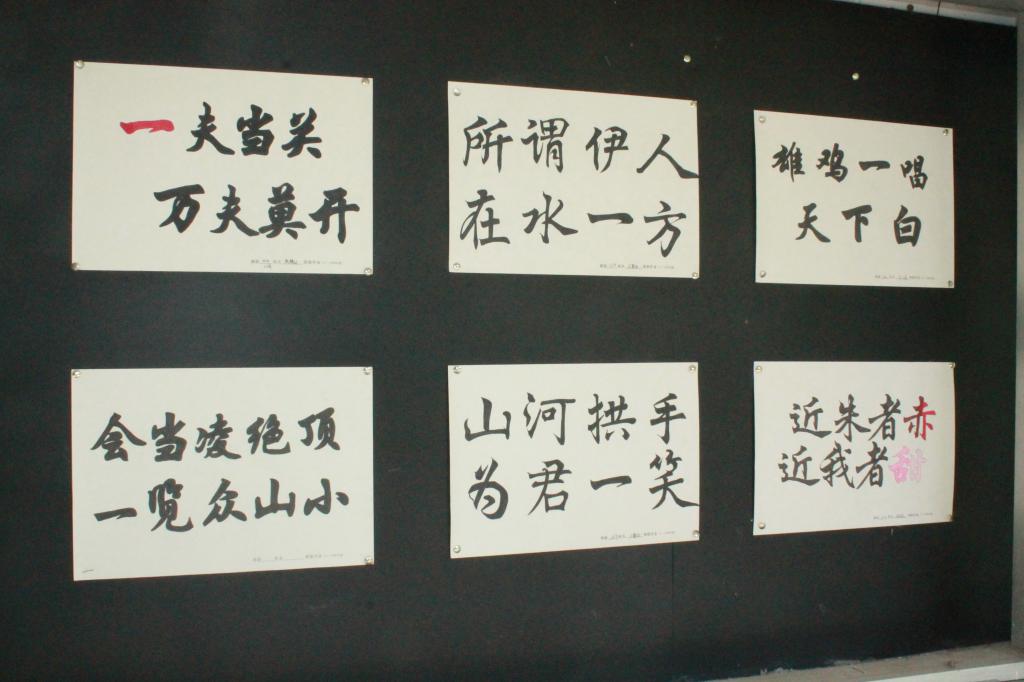 一夫当关
万夫莫开
所谓伊人
在水一方
雄鸡一唱
天下白
会当凌绝顶
一览众山小
山河拱手
为君一笑
近朱者赤
近我者甜